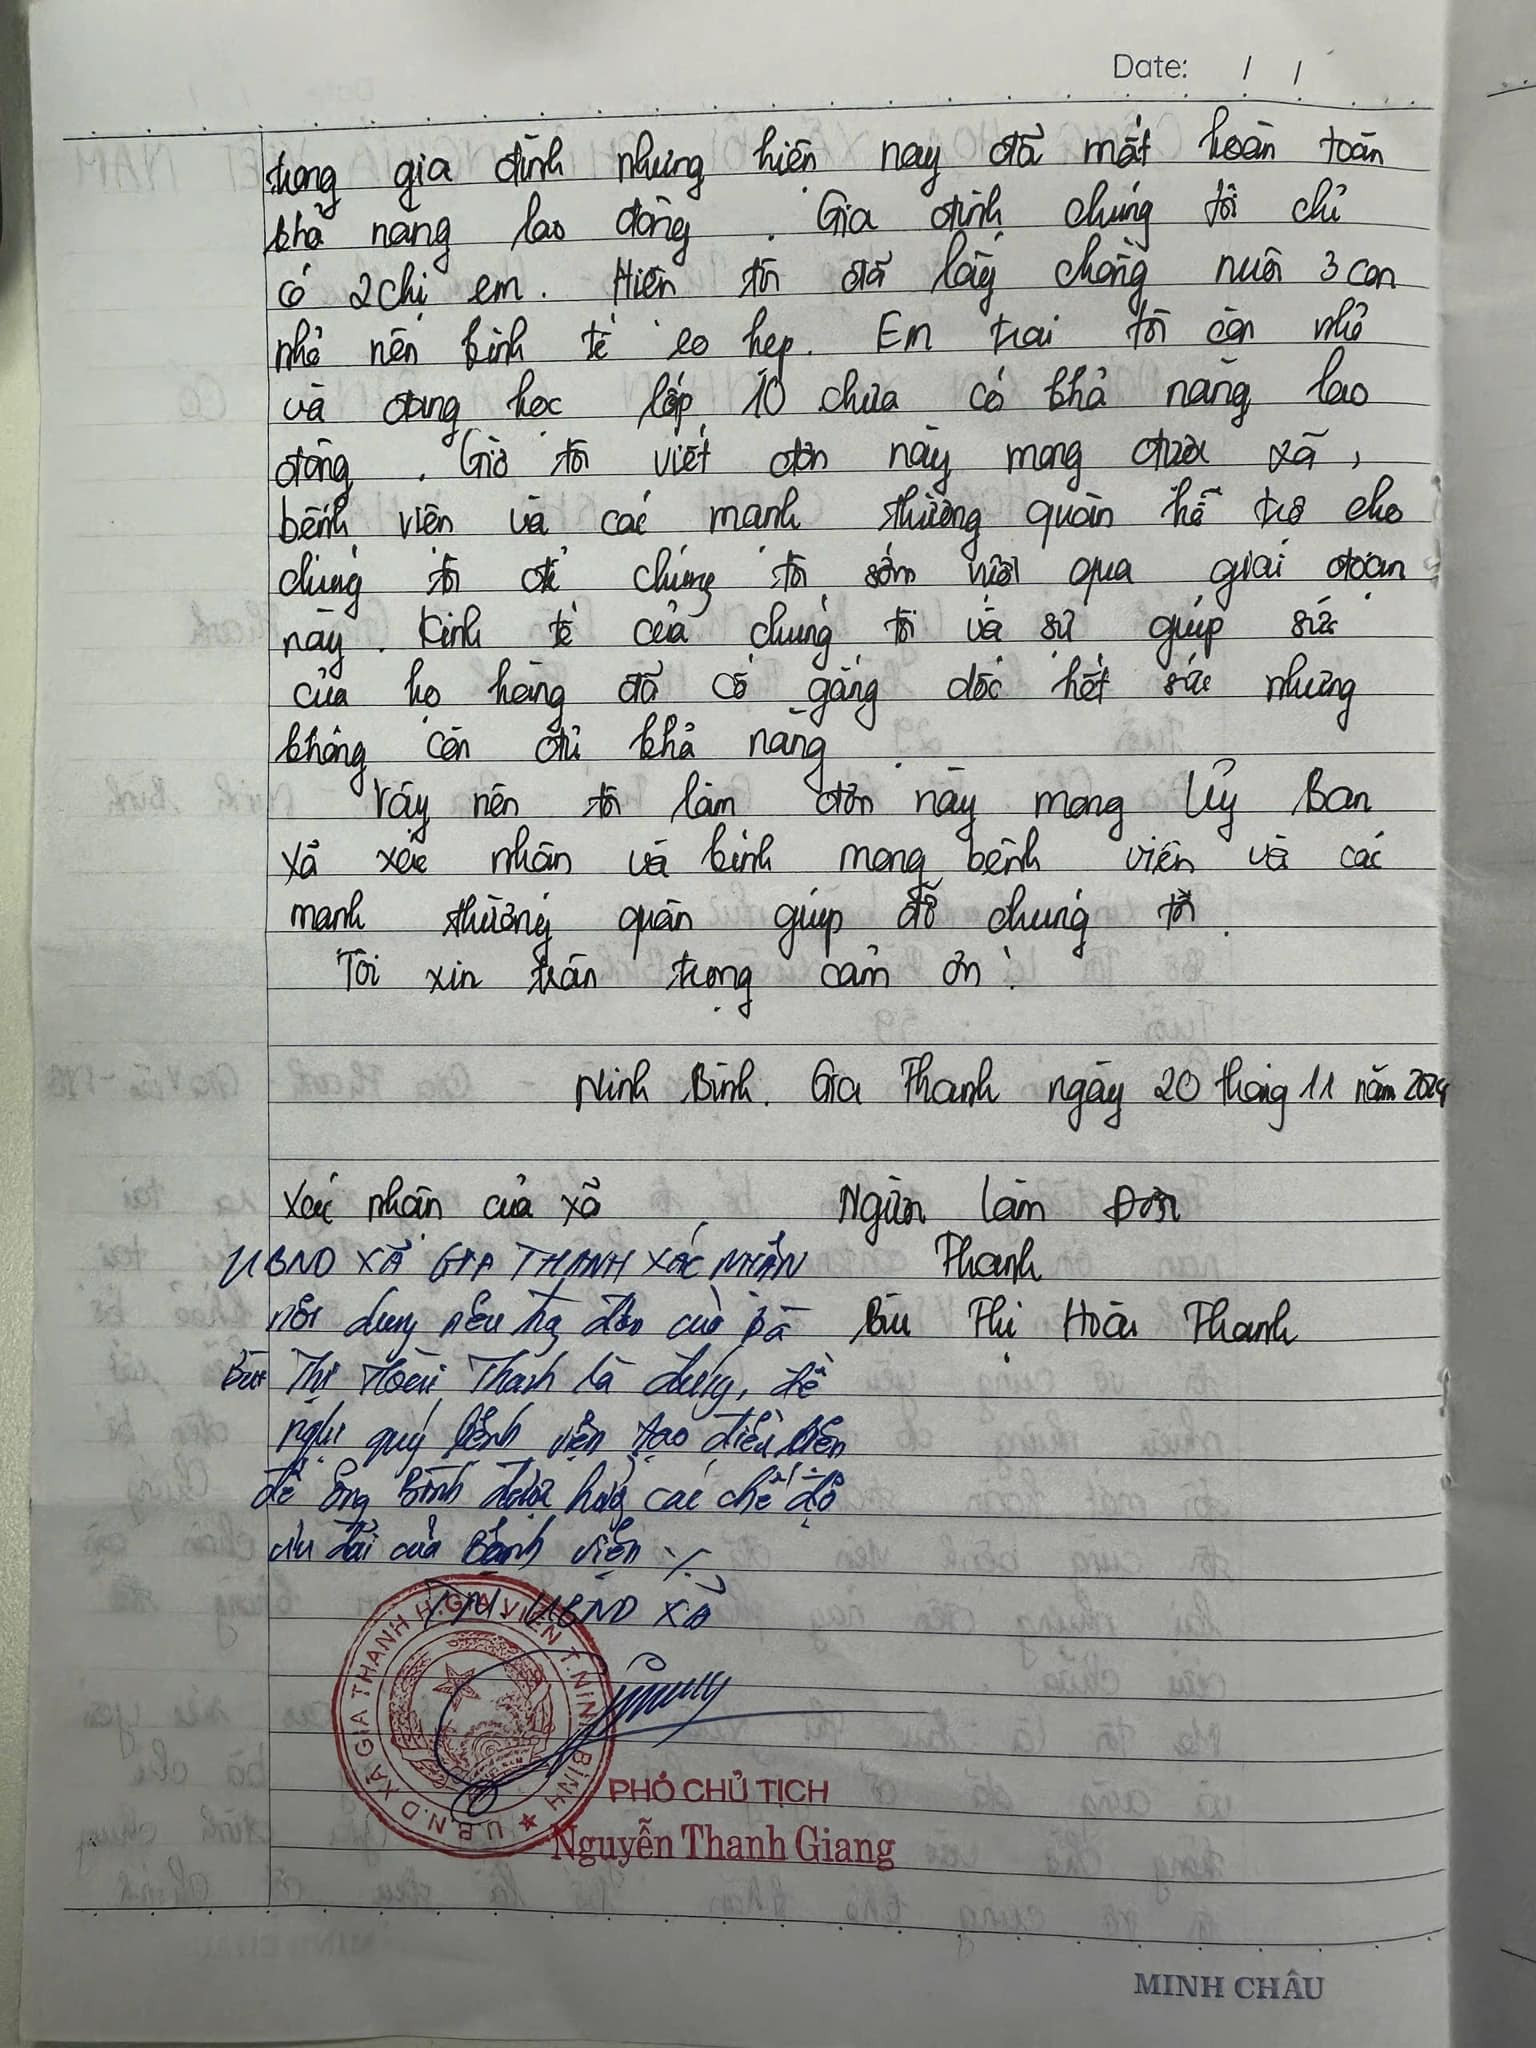 Date: / /
trong gia đình nhưng hiện nay đã mất hoàn toàn
khả năng lao động. Gia đình chúng tôi chỉ
có 2 chị em. Hiện tôi đã lấy chồng nuôi 3 con
nhỏ nên kinh tế eo hẹp. Em trai tôi còn nhỏ
và đang học lớp 10 chưa có khả năng lao
động. Giờ tôi viết đơn này mong được xã,
bệnh viện và các mạnh thường quân hỗ trợ cho
chúng tôi để chúng tôi sớm vượt qua giai đoạn
này. Kinh tế của chúng tôi và sự giúp sức
của họ hàng đã cố gắng dốc hết sức nhưng
không còn đủ khả năng.
Vậy nên tôi làm đơn này mong Uỷ Ban
xã xác nhận và kính mong bệnh viện và các
mạnh thường quân giúp đỡ chúng tôi.
Tôi xin trân trọng cảm ơn!
Ninh Bình. Gia Thanh ngày 20 tháng 11 năm 2024
Xác nhận của xã
Người làm Đơn
UBND XÃ GIA THANH XÁC NHẬN
Thanh
nội dung nêu trong đơn của bà
Bùi Thị Hoài Thanh
Bùi Thị Hoài Thanh là đúng, đề
nghị quý bệnh viện tạo điều kiện
để ông Bình được hưởng các chế độ
ưu đãi của Bệnh viện ./.
TM UBND XÃ
U.B.N.D XÃ GIA THANH H. GIA VIỄN T. NINH BÌNH
PHÓ CHỦ TỊCH
Nguyễn Thanh Giang
MINH CHÂU